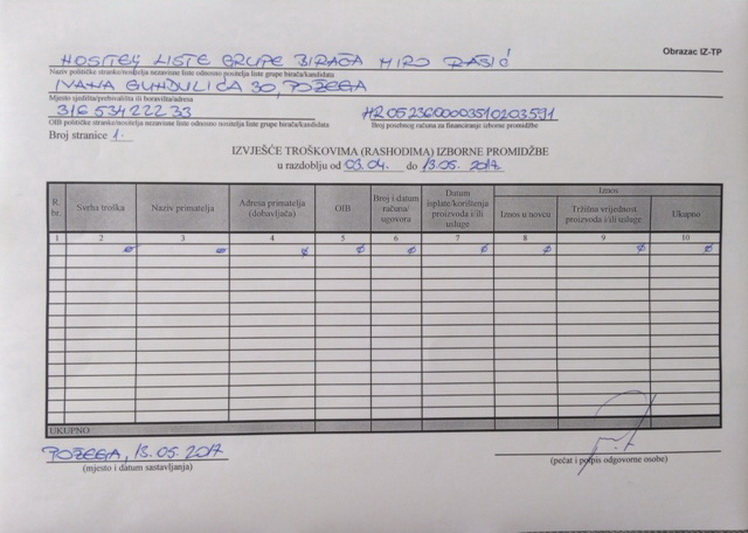 Obrazac IZ-TP
NOSITELJ LISTE GRUPE BIRAČA MIRO RAŠIĆ
Naziv političke stranke/nositelja nezavisne liste odnosno nositelja liste grupe birača/kandidata
IVANA GUNDULIĆA 30, POŽEGA
Mjesto sjedišta/prebivališta ili boravišta/adresa
316 534 222 33 HR0523600003510203591
OIB političke stranke/nositelja nezavisne liste odnosno nositelja liste grupe birača/kandidata Broj posebnog računa za financiranje izborne promidžbe
Broj stranice 1.
IZVJEŠĆE TROŠKOVIMA (RASHODIMA) IZBORNE PROMIDŽBE
u razdoblju od 03.04. do 13.05. 2017
R. br. Svrha troška Naziv primatelja Adresa primatelja (dobavljača) OIB Broj i datum računa/ugovora Datum isplate/korištenja proizvoda i/ili usluge Iznos
Iznos u novcu Tržišna vrijednost proizvoda i/ili usluge Ukupno
1 2 3 4 5 6 7 8 9 10
ø ø ø ø ø ø ø ø ø
UKUPNO
POŽEGA, 13.05. 2017
(mjesto i datum sastavljanja) (pečat i potpis odgovorne osobe)